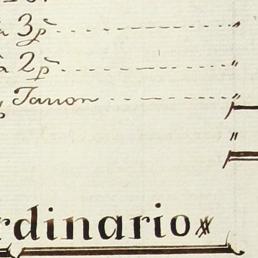 a 3p̃ . . . . . . . . "
a 2p̃ . . . . . . . . "
Tanon . . . . . . . "
"
rdinario